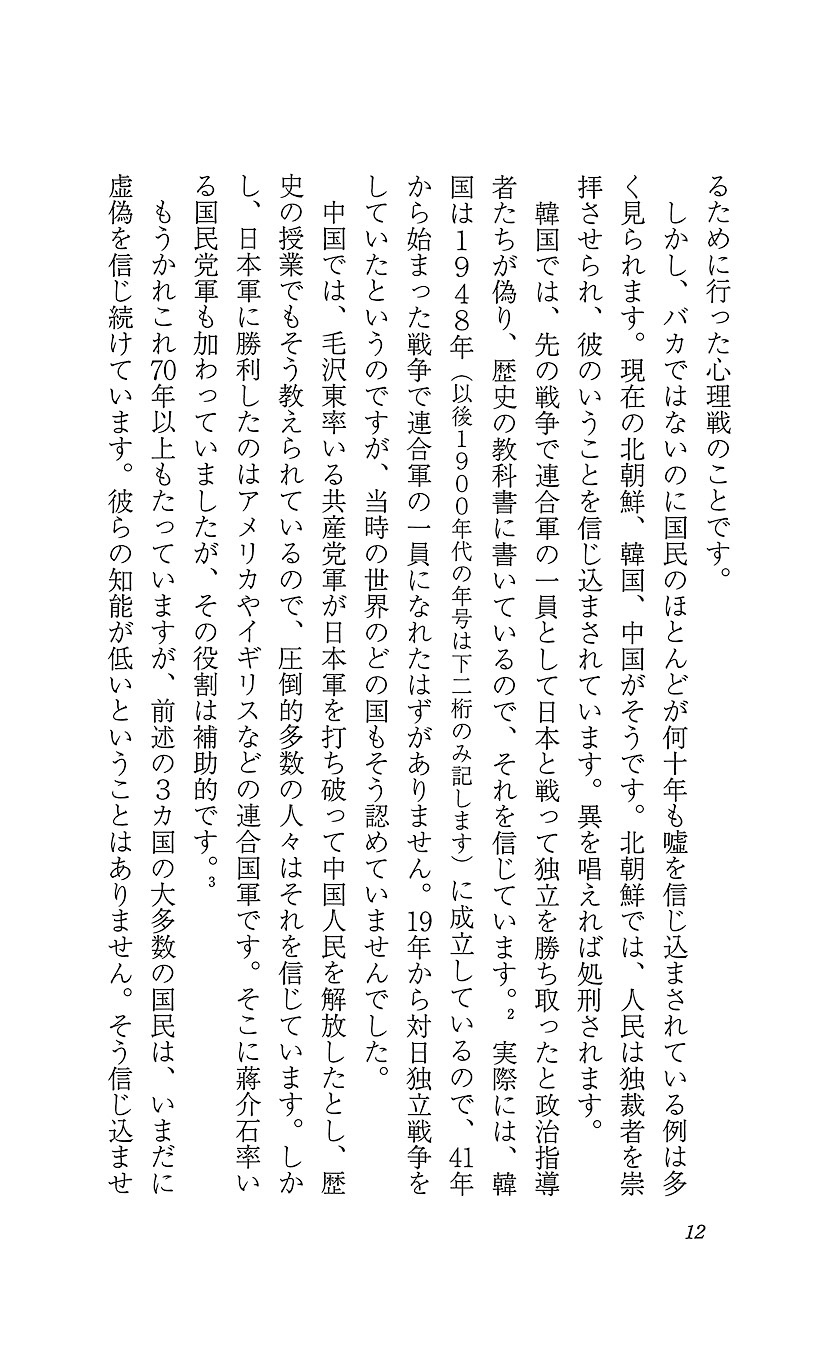 るために行った心理戦のことです。
しかし、バカではないのに国民のほとんどが何十年も嘘を信じ込まされている例は多
く見られます。現在の北朝鮮、韓国、中国がそうです。北朝鮮では、人民は独裁者を崇
拝させられ、彼のいうことを信じ込まされています。異を唱えれば処刑されます。
韓国では、先の戦争で連合軍の一員として日本と戦って独立を勝ち取ったと政治指導
者たちが偽り、歴史の教科書に書いているので、それを信じています。2 実際には、韓
国は1948年（以後1900年代の年号は下二桁のみ記します）に成立しているので、41年
から始まった戦争で連合軍の一員になれたはずがありません。19年から対日独立戦争を
していたというのですが、当時の世界のどの国もそう認めていませんでした。
中国では、毛沢東率いる共産党軍が日本軍を打ち破って中国人民を解放したとし、歴
史の授業でもそう教えられているので、圧倒的多数の人々はそれを信じています。しか
し、日本軍に勝利したのはアメリカやイギリスなどの連合国軍です。そこに蔣介石率い
る国民党軍も加わっていましたが、その役割は補助的です。3
もうかれこれ70年以上もたっていますが、前述の3カ国の大多数の国民は、いまだに
虚偽を信じ続けています。彼らの知能が低いということはありません。そう信じ込ませ
12